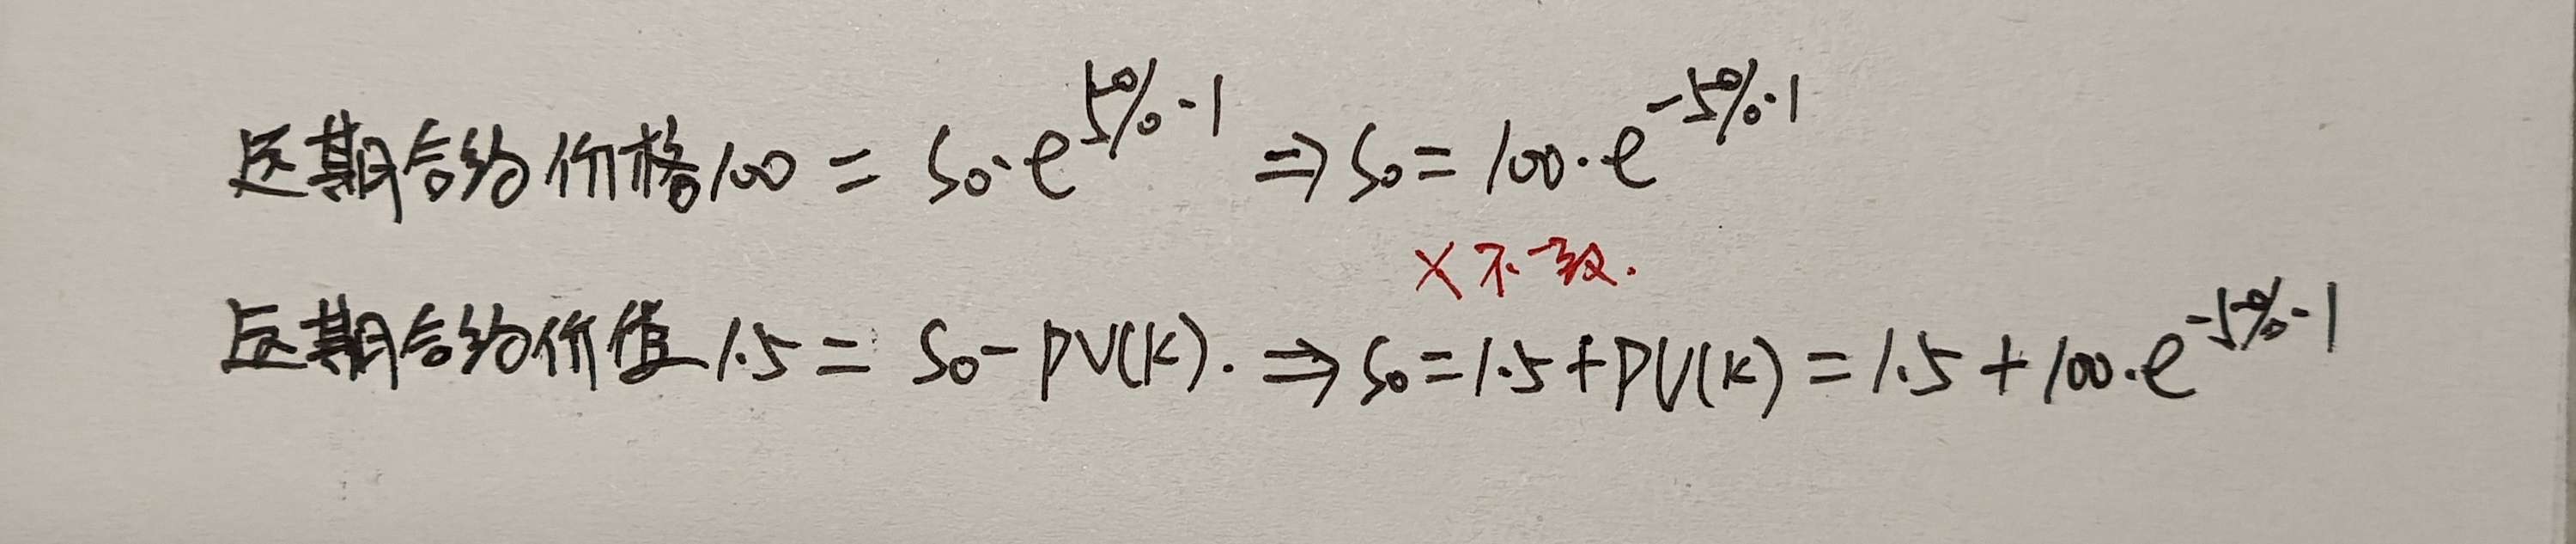 远期合约价格100 = S₀·e^{5%·1} ⇒ S₀ = 100·e^{-5%·1}
× 不一致.
远期合约价值1.5 = S₀ - PV(K). ⇒ S₀ = 1.5 + PV(K) = 1.5 + 100·e^{-5%·1}